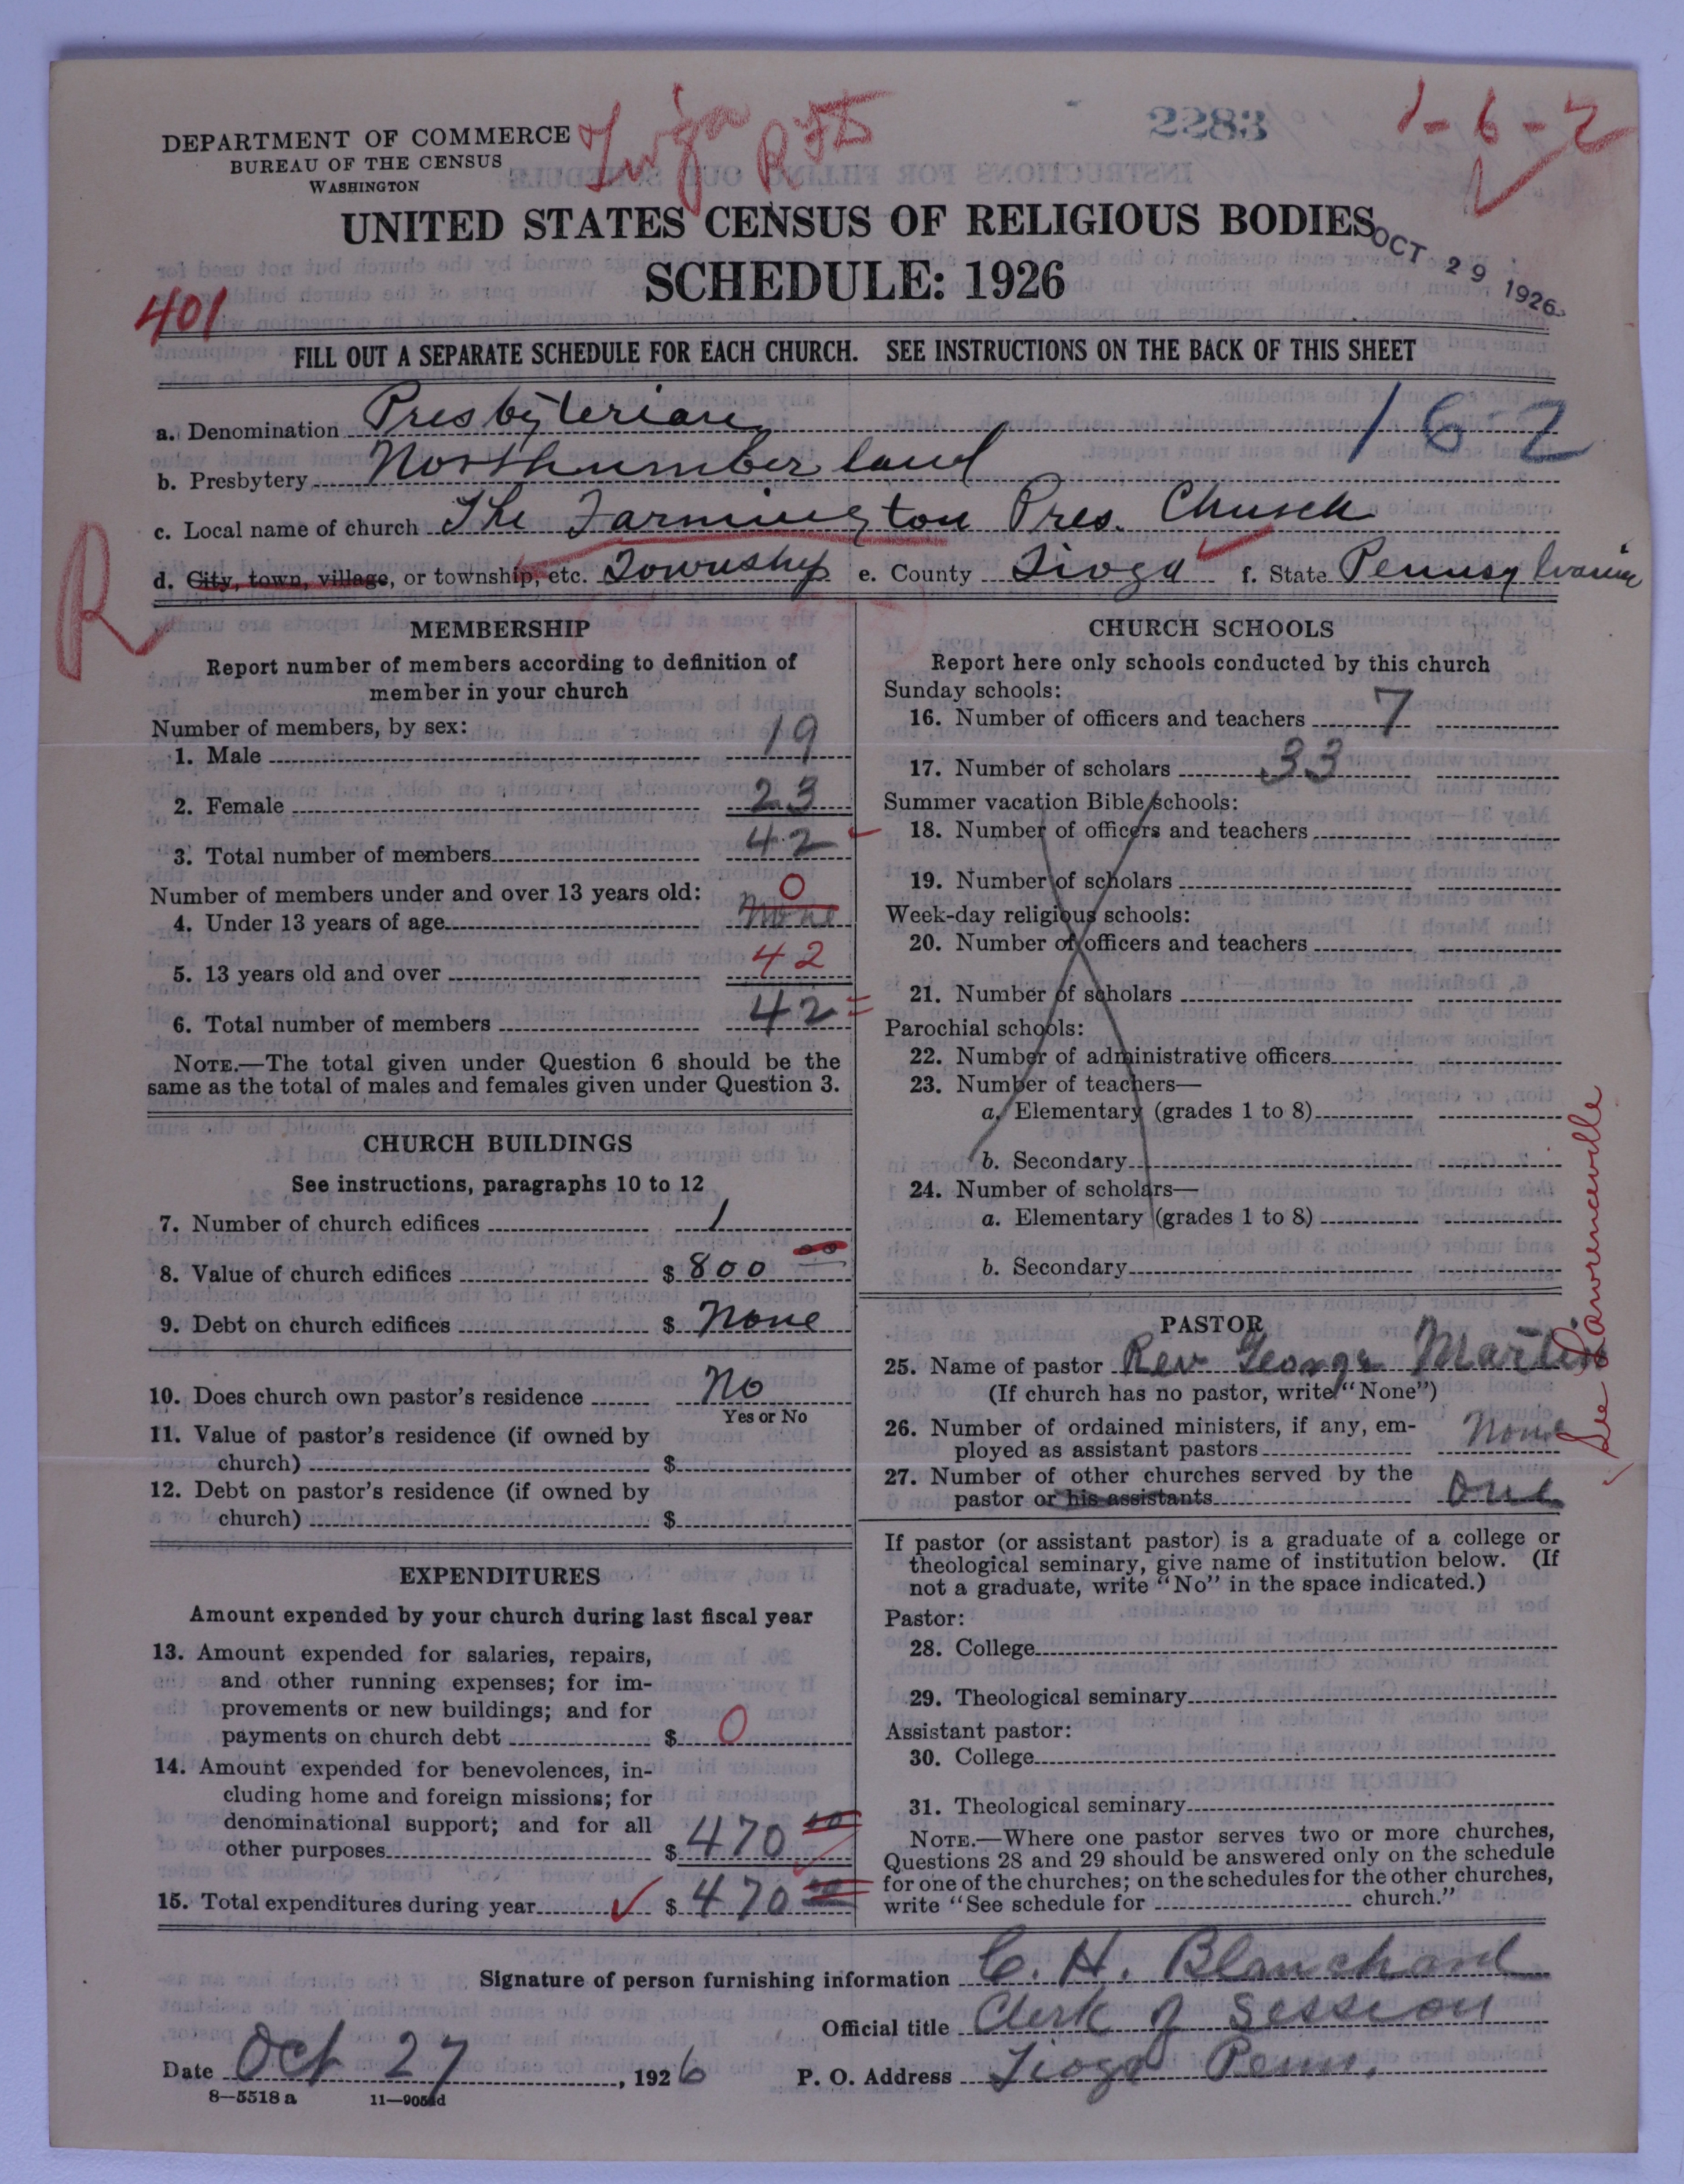 DEPARTMENT OF COMMERCE
BUREAU OF THE CENSUS
WASHINGTON
Tioga RFD
2283
1-6-2
UNITED STATES CENSUS OF RELIGIOUS BODIES
SCHEDULE: 1926
OCT 29 1926
401
FILL OUT A SEPARATE SCHEDULE FOR EACH CHURCH. SEE INSTRUCTIONS ON THE BACK OF THIS SHEET
a. Denomination Presbyterian 162
b. Presbytery Northumberland
c. Local name of church The Farmington Pres. Church
R
d. City, town, village, or township, etc. Township e. County Tioga f. State Pennsylvania
MEMBERSHIP
Report number of members according to definition of
member in your church
Number of members, by sex:
1. Male 19
2. Female 23
3. Total number of members 42
Number of members under and over 13 years old:
4. Under 13 years of age None 0
5. 13 years old and over 42
6. Total number of members 42
NOTE.—The total given under Question 6 should be the
same as the total of males and females given under Question 3.
CHURCH BUILDINGS
See instructions, paragraphs 10 to 12
7. Number of church edifices 1
8. Value of church edifices $ 800 00
9. Debt on church edifices $ None
10. Does church own pastor's residence No
Yes or No
11. Value of pastor's residence (if owned by
church) $
12. Debt on pastor's residence (if owned by
church) $
EXPENDITURES
Amount expended by your church during last fiscal year
13. Amount expended for salaries, repairs,
and other running expenses; for im-
provements or new buildings; and for
payments on church debt $ 0
14. Amount expended for benevolences, in-
cluding home and foreign missions; for
denominational support; and for all
other purposes $ 470 00
15. Total expenditures during year $ 470 00
CHURCH SCHOOLS
Report here only schools conducted by this church
Sunday schools:
16. Number of officers and teachers 7
17. Number of scholars 33
Summer vacation Bible schools:
18. Number of officers and teachers
19. Number of scholars
Week-day religious schools:
20. Number of officers and teachers
21. Number of scholars
Parochial schools:
22. Number of administrative officers
23. Number of teachers—
a. Elementary (grades 1 to 8)
b. Secondary
24. Number of scholars—
a. Elementary (grades 1 to 8)
b. Secondary
PASTOR
25. Name of pastor Rev George Martin
(If church has no pastor, write "None")
26. Number of ordained ministers, if any, em-
ployed as assistant pastors None
27. Number of other churches served by the
pastor or his assistants One
See Lawrenceville
If pastor (or assistant pastor) is a graduate of a college or
theological seminary, give name of institution below. (If
not a graduate, write "No" in the space indicated.)
Pastor:
28. College
29. Theological seminary
Assistant pastor:
30. College
31. Theological seminary
NOTE.—Where one pastor serves two or more churches,
Questions 28 and 29 should be answered only on the schedule
for one of the churches; on the schedules for the other churches,
write "See schedule for church."
Signature of person furnishing information C. H. Blanchard
Official title Clerk of Session
Date Oct 27, 1926 P. O. Address Tioga Penn.
8—5518 a